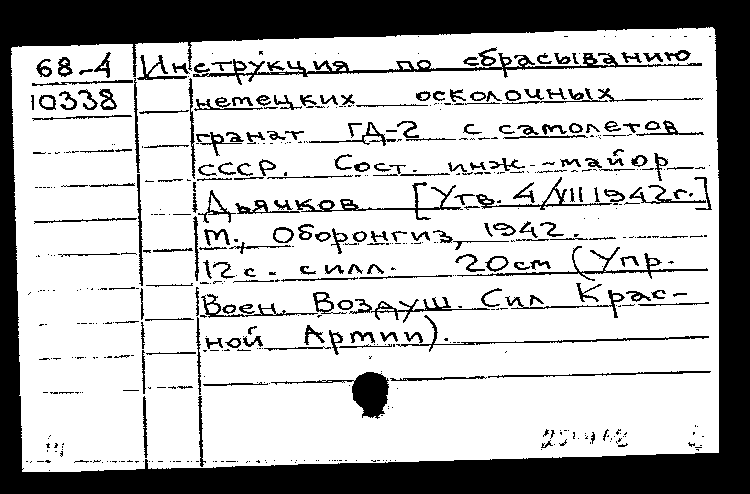 68-4 Инструкция по сбрасыванию
10338 немецких осколочных
гранат ГД-2 с самолетов
СССР. Сост. инж.-майор
Дьячков [Утв. 4/VII 1942г.]
М., Оборонгиз, 1942.
12 с. с илл. 20 см (Упр.
Воен. Воздуш. Сил Крас-
ной Армии).